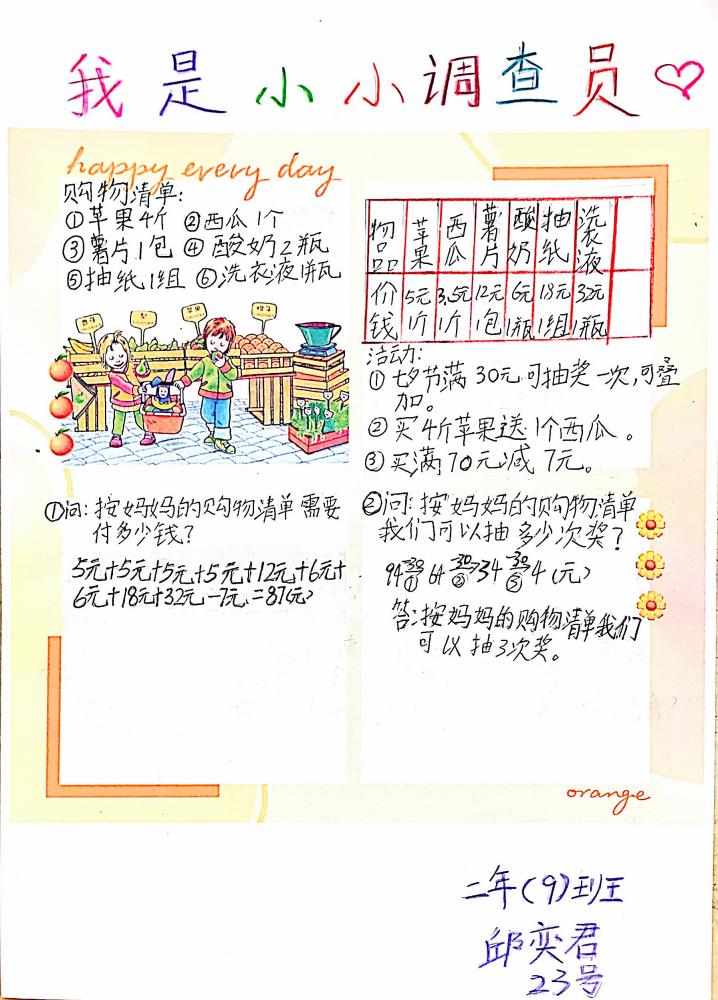 我是小小调查员
happy every day
购物清单:
①苹果4个 ②西瓜1个
③薯片1包 ④酸奶2瓶
⑤抽纸1组 ⑥洗衣液1瓶
物品 苹果 西瓜 薯片 酸奶 抽纸 洗衣液
价钱 5元1个 3.5元1个 12元1包 6元1瓶 18元1组 32元1瓶
活动:
①七夕节满30元可抽奖一次,可叠
加。
②买4个苹果送1个西瓜。
③买满70元减7元。
①问:按妈妈的购物清单需要
付多少钱?
5元+5元+5元+5元+12元+6元+
6元+18元+32元-7元=87(元)
②问:按妈妈的购物清单
我们可以抽多少次奖?
94-30①→64-30②→34-30③→4(元)
答:按妈妈的购物清单我们
可以抽3次奖。
orange
二年(9)班
邱奕君
23号